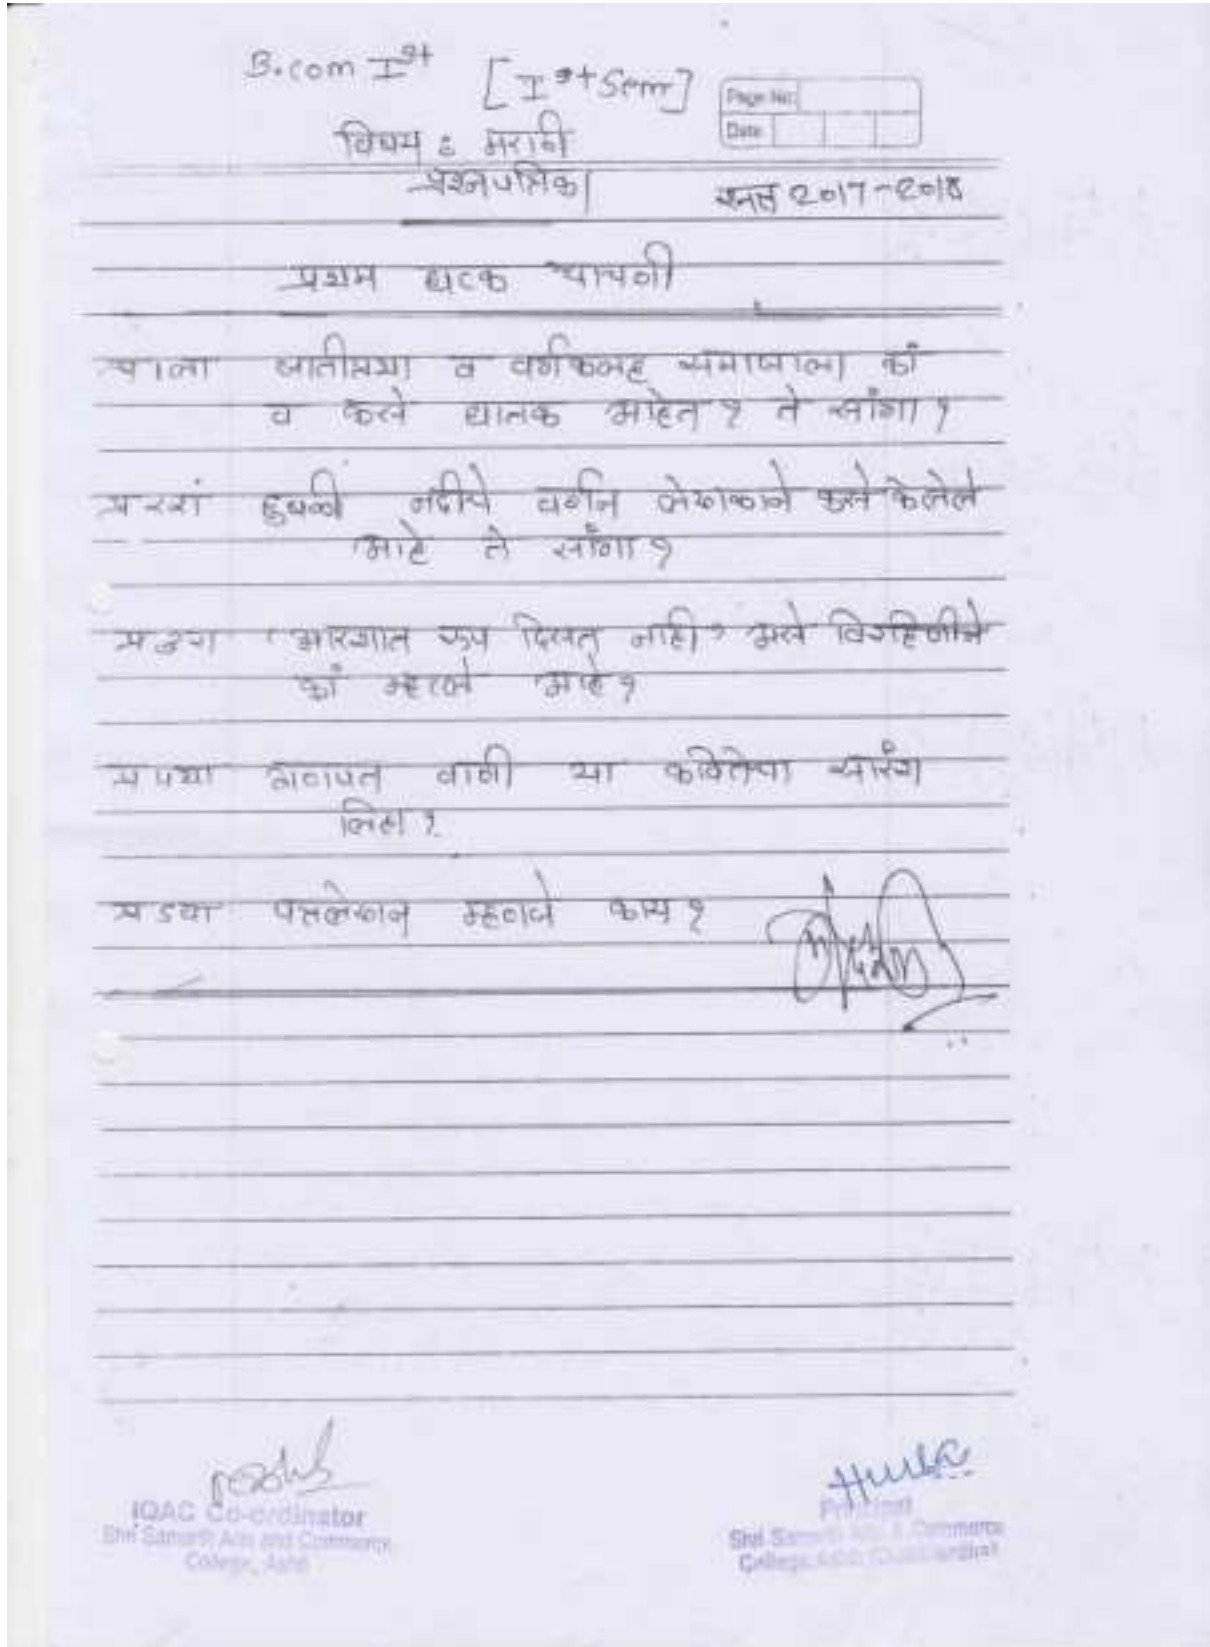 B.com Ist [Ist Sem]
Page No:
Date
विषय : मराठी
प्रश्नपत्रिका
सत्र 2017-2018
प्रथम घटक चाचणी
प्र१ला जातीप्रथा व वर्गकलह समाजाला कां
व कसे घातक आहेत? ते सांगा?
प्र२रां हुबळी नदीचे वर्णन लेखकाने कसे केलेले
आहे ते सांगा?
प्र३रा 'आरशात रूप दिसत नाही' असे विरहिणीने
कां म्हटले आहे?
प्र४था गणपत वाणी या कवितेचा सारंश
लिहा?
प्र5वा पत्रलेखन म्हणजे काय?
IQAC Co-ordinator
Shri Samarth Arts and Commerce
College, Ashti
Principal
Shri Samarth Arts & Commerce
College